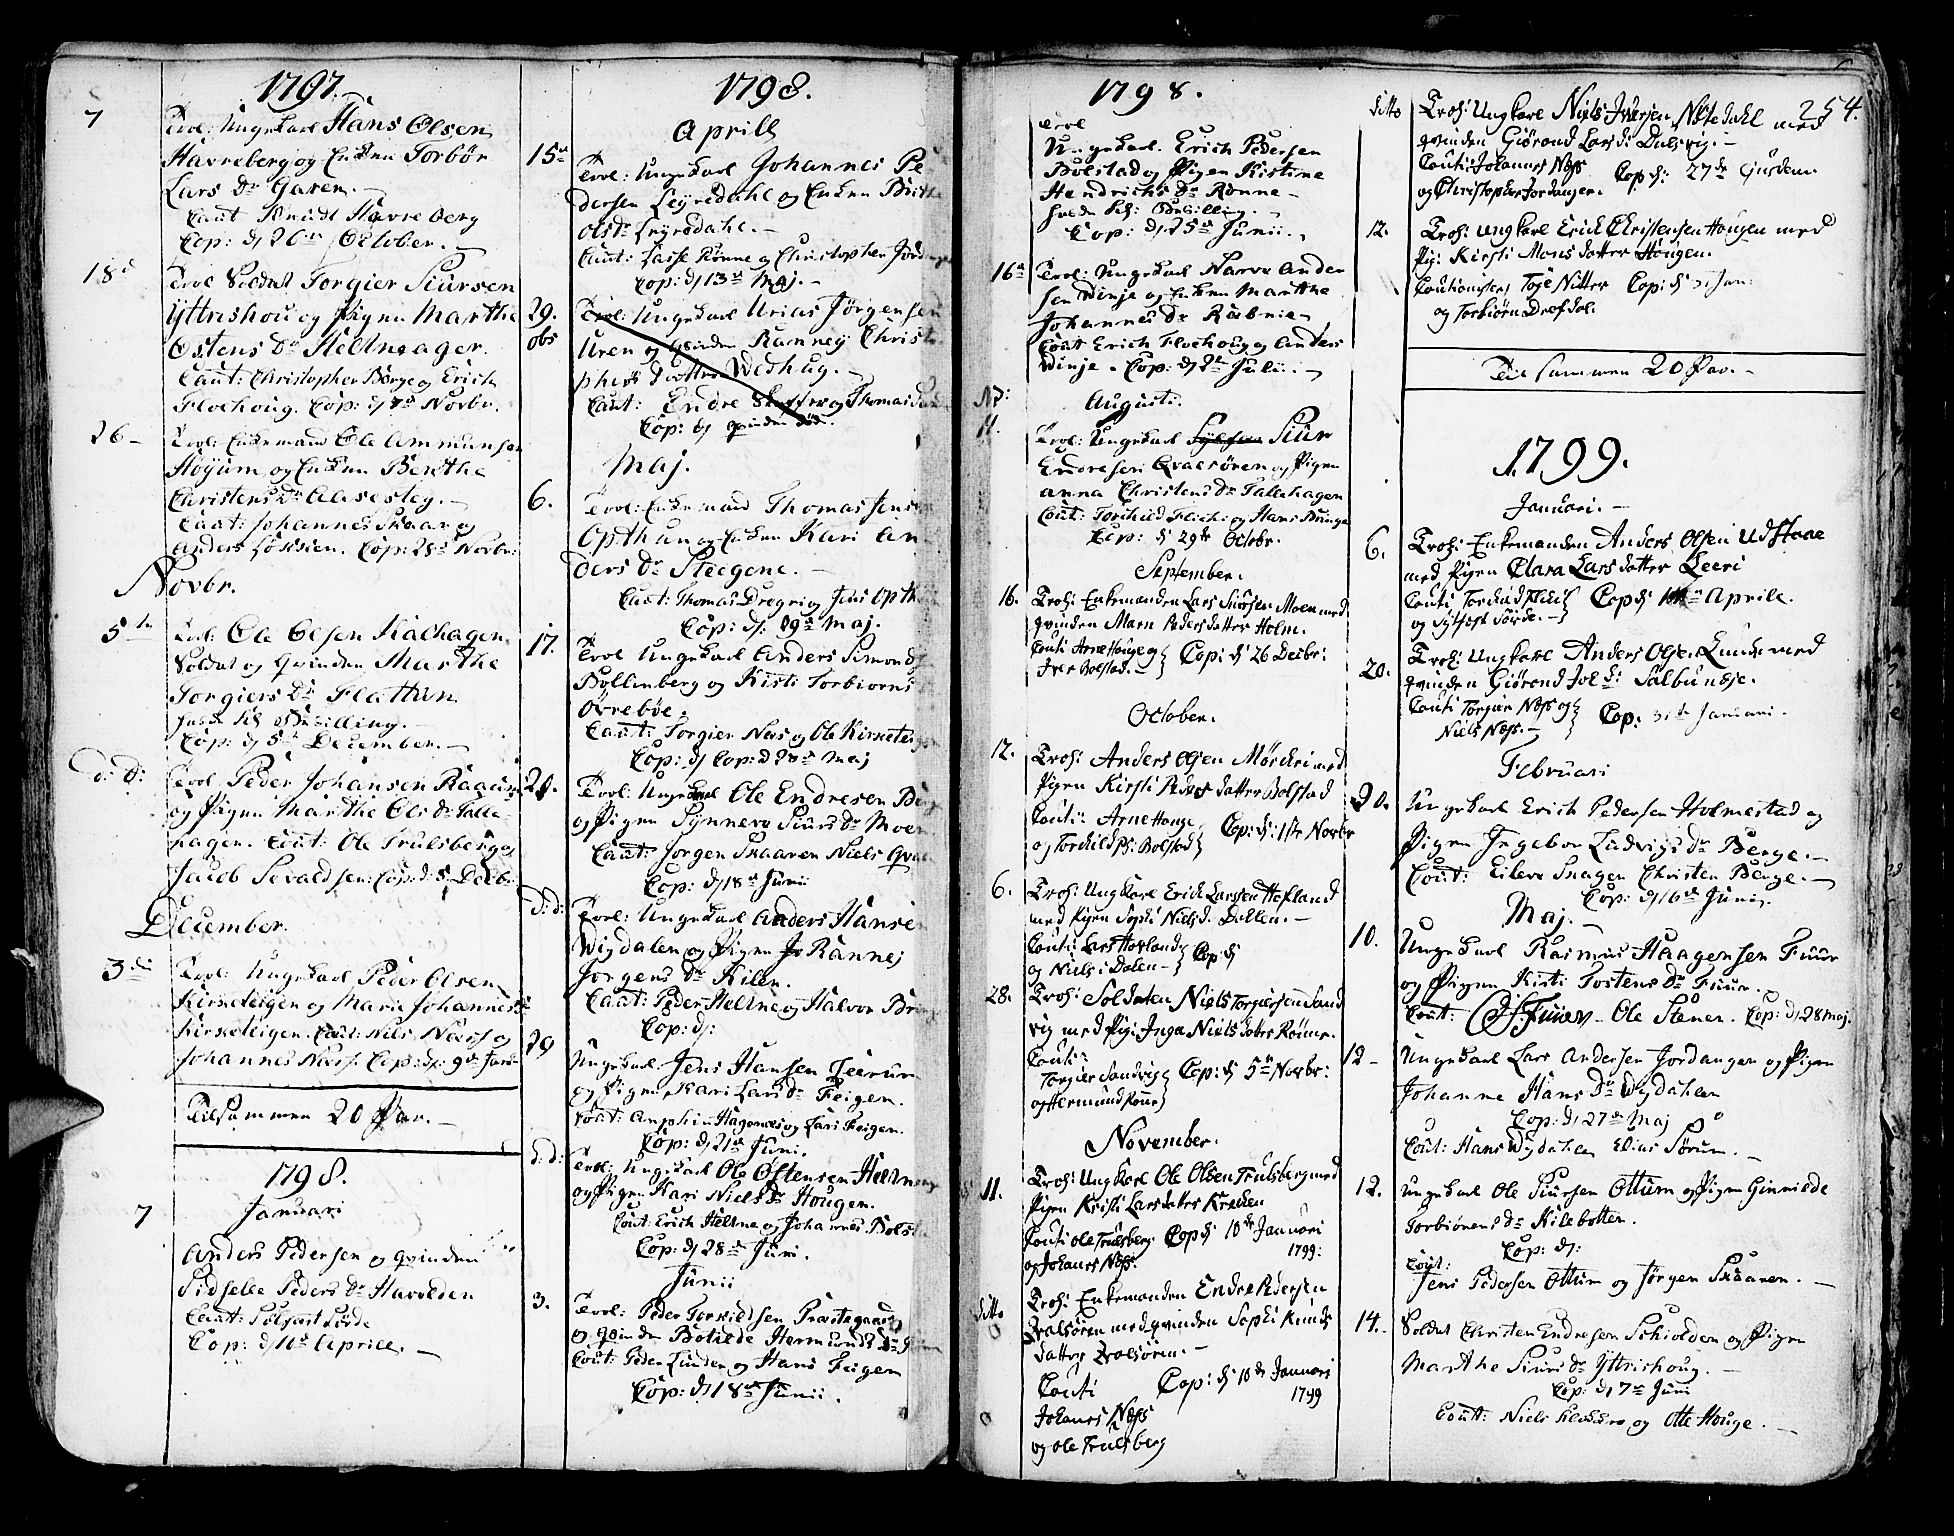 1797.
7 Trol: Ungekarl Hans Olsen
Havreberg og Enken Torbør
Lars Dr Garen.
Caut Knudt Havreberg
Cop: d, 26 October.
18d Trol Soldat Torgier Siursen
Yttrishou og Pigen Marthe
Ostens Dr Heltneager.
Caut: Christopher Børge og Erich
Flochoug. Cop: d, 7 Novbr.
26 Trol: Enkemand Ole Ammunsen
Høyum og Enken Berthe
Christens Dr Aasesteg.
Caut: Johannes Skaar og
Anders Løkkien. Cop: 28 Novbr:
Novbr.
5te Trol: Ole Olsen Kalhagen
Soldat og Qvinden Marthe
Torgiers Dr Flattun
Cop: d, 5 December.
d: d: Trol Peder Johansen Raaum
og Pigen Marthe Ols Dr Talle-
hagen. Caut: Ole Trulsberg og
Jacob Sevaldsen: Cop: d: 5 Decbr
December.
3die Trol: Ungekarl Peder Olsen
Kirketeigen og Marie Johannes Dr
Kirketeigen. Caut: Niels Næss og
Johannes Næss. Cop: d: 9 Janr
Tilsammen 20 Par.
1798.
Januari
7 Anders Pedersen og Qvinden
Sidselle Peders Dr Harolden
Caut: Sølfest Sørde
Cop: d, 10 Aprill.
1798.
Aprill
15 Trol: Ungekarl Johannes Pe-
dersen Leyredahl og Enken Britte
Olsdr Leyredahl.
Caut: Lasse Rønne og Christopher Jordan
Cop: d, 13 Maj.
29. Trol: Ungekarl Urias Jørgensen
obs Uren og Qvinden Ranneij Christo-
phers Dotter Wedhug.
Caut: Endre Skaffer og Thomas
Cop: d, qvinden død.
Maj.
6. Trol: Enkemand Thomas Jensen
Opthun og Enken Kari An-
ders Dr Steegene.
Caut: Thomas Dregni og Jens Opthun
Cop: d: 29 Maj.
17. Trol Ungekarl Anders Simonds
Bollinberg og Kisti Torbiorns
Øvrebøe.
Caut: Torgier Næs og Ole Kirketeigen
Cop: d, Cop: d 28 Maj
20. Trol: Ungekarl Ole Endresen
og Pigen Synneva Siurs Dr Moen
Caut: Jorgen Skaaren Niels
Cop: d, 18 Junii
d: d: Trol: Ungekarl Anders Hansen
Wigdalen og Pigen Jo Rannej
Jorgens Dr Kilen.
Caut: Peder Heltne og Halvor
Cop: d:
29 Ungekarl Jens Hansen Leirum
og Pigen Kari Lars Dr Feigen.
Caut: Amphin Hagenes og Lars Feigen.
Cop: d, 21 Juni.
d: d: Trol: Ungekarl Ole Østensen Heltne
og Pigen Kari Niels Dr Hougen.
Caut: Erich Heltne og Johannes Bolstad
Cop: d, 28 Juni.
Junii
3. Trol: Peder Torkildsen Præstegaard
og Qvinden Botilde Hermunds Dr
Caut: Peder Linden og Hans Feigen
Cop: d, 18 Junii.
1798.
Trol
Ungekarl Erich Pedersen
Bolstad og Pigen Kistine
Hendrichs Dr Rønne
Cop: d, 25 Junii.
16 Trol: Ungekarl Narve Ander
sen Dinje og Enken Marthe
Johannes Dr Rubnien
Caut Erich Flochoug og Anders
Dinje. Cop: d, 2 Julii.
Augusti.
11. Trol: Ungekarl Siur
Endresen Qvalsøren og Pigen
Anna Christens Dr Tallehagen
Caut: Torchild Flich: og Hans Bunge
Cop: d 29te Octobr.
September.
16. Trol: Enkemanden Lars Siursen Moen med
qvinden Marn Peders datter Holm.
Cauti Arne Houge og Cop: d: 26 Decbr:
Iver Bolstad.
October.
12. Trol: Anders Olsen Mørkrimed
Pigen Kirsti Peders datter Bolstad
Cauti: Arne Houge Cop: d: 1ste Novbr
og Torkild Ps: Bolstad
6. Trol: Ungkarl Erick Larssen Høfland
med Pigen Sophi Nielsd. Dallen.
Cauti Lars Hovland Cop: d
og Niels i Dalen
28. Trol: Soldaten Niels Torgiersen Sand
vig med Pig: Inga Niels dater Rønne.
Cauti:
Torgier Sandvig Cop: d 5te Novbr:
og Hermund Rønne
November.
11. Trol: Ungkarl Ole Olsen Trulsberg med
Pigen Kristi Lars datter Krecken
Cauti Ole Trulsberg. Cop d 10de Januari
1799:
og Johanes Næss.
ditto Trol: Enkemanden Endre Pedersen
Qvalsøren med qvinden Sophi Knuds
datter Qvalsøren.
Cauti Cop: d: 10de Januari
1799
Johanes Næss
og Ole Trulsberg
254.
ditto Trol: Ungkarl Niels Iversen Nøtedahl med
qvinden Giørond Lars d: Dulsvig.
Cauti: Johannes Næss Cop: d: 27de
og Christopher Jordanger.
12. Trol: Ungkarl Erick Christensen Hougen med
Pig: Kirsti Mons datter Hougen.
Cautionister Toje Nitter Cop: d: Jan:
og Torbiørn Drefdal.
Til sammen 20 Par.
1799.
Januari.
6. Trol: Enkemanden Anders Olsen Udstaae
med Pigen Clara Lars datter Leeri
Cauti Torkild Flich Cop: d: Aprile.
og Sylfest Sørde.
20. Trol: Ungkarl Anders Olsen Lundemed
qvinden Giørond Jol d: Salbunsje.
Cauti Torgier Næss og Cop: 31te Januari.
Niels Næss.
Februari
20. Ungekarl Erich Pedersen Holmestad og
Pigen Ingebor Ludvigs Dr Berge.
Caut: Eilert Snagen Christen Berge.
Cop: d, 16 Juni.
Maj.
10. Ungekarl Rasmus Haagensen Fuur
og Pigen Kisti Tostens Dr Fuur.
Caut: O. S. Fuuer. Ole Stenen. Cop: d, 28 Maj.
12 Ungekarl Lars Andersen Jordangen og Pigen
Johanne Hans Dr Wigdahlen
Cop: d, 27 Maj
Caut: Hans Wigdahlen Elias Sørum.
12. Ungekarl Ole Siursen Ottum og Pigen Ginnilde
Torbiørens Dr Kilebotten.
Cop: d,:
Caut:
Jens Pedersen Ottum og Jørgen Skaanen.
14. Soldat Christen Endresen Schiolden og Pigen
Marthe Siurs Dr Yttrishoug.
Cop: d, 7 Juni
Caut: Niels og Otte Houge.